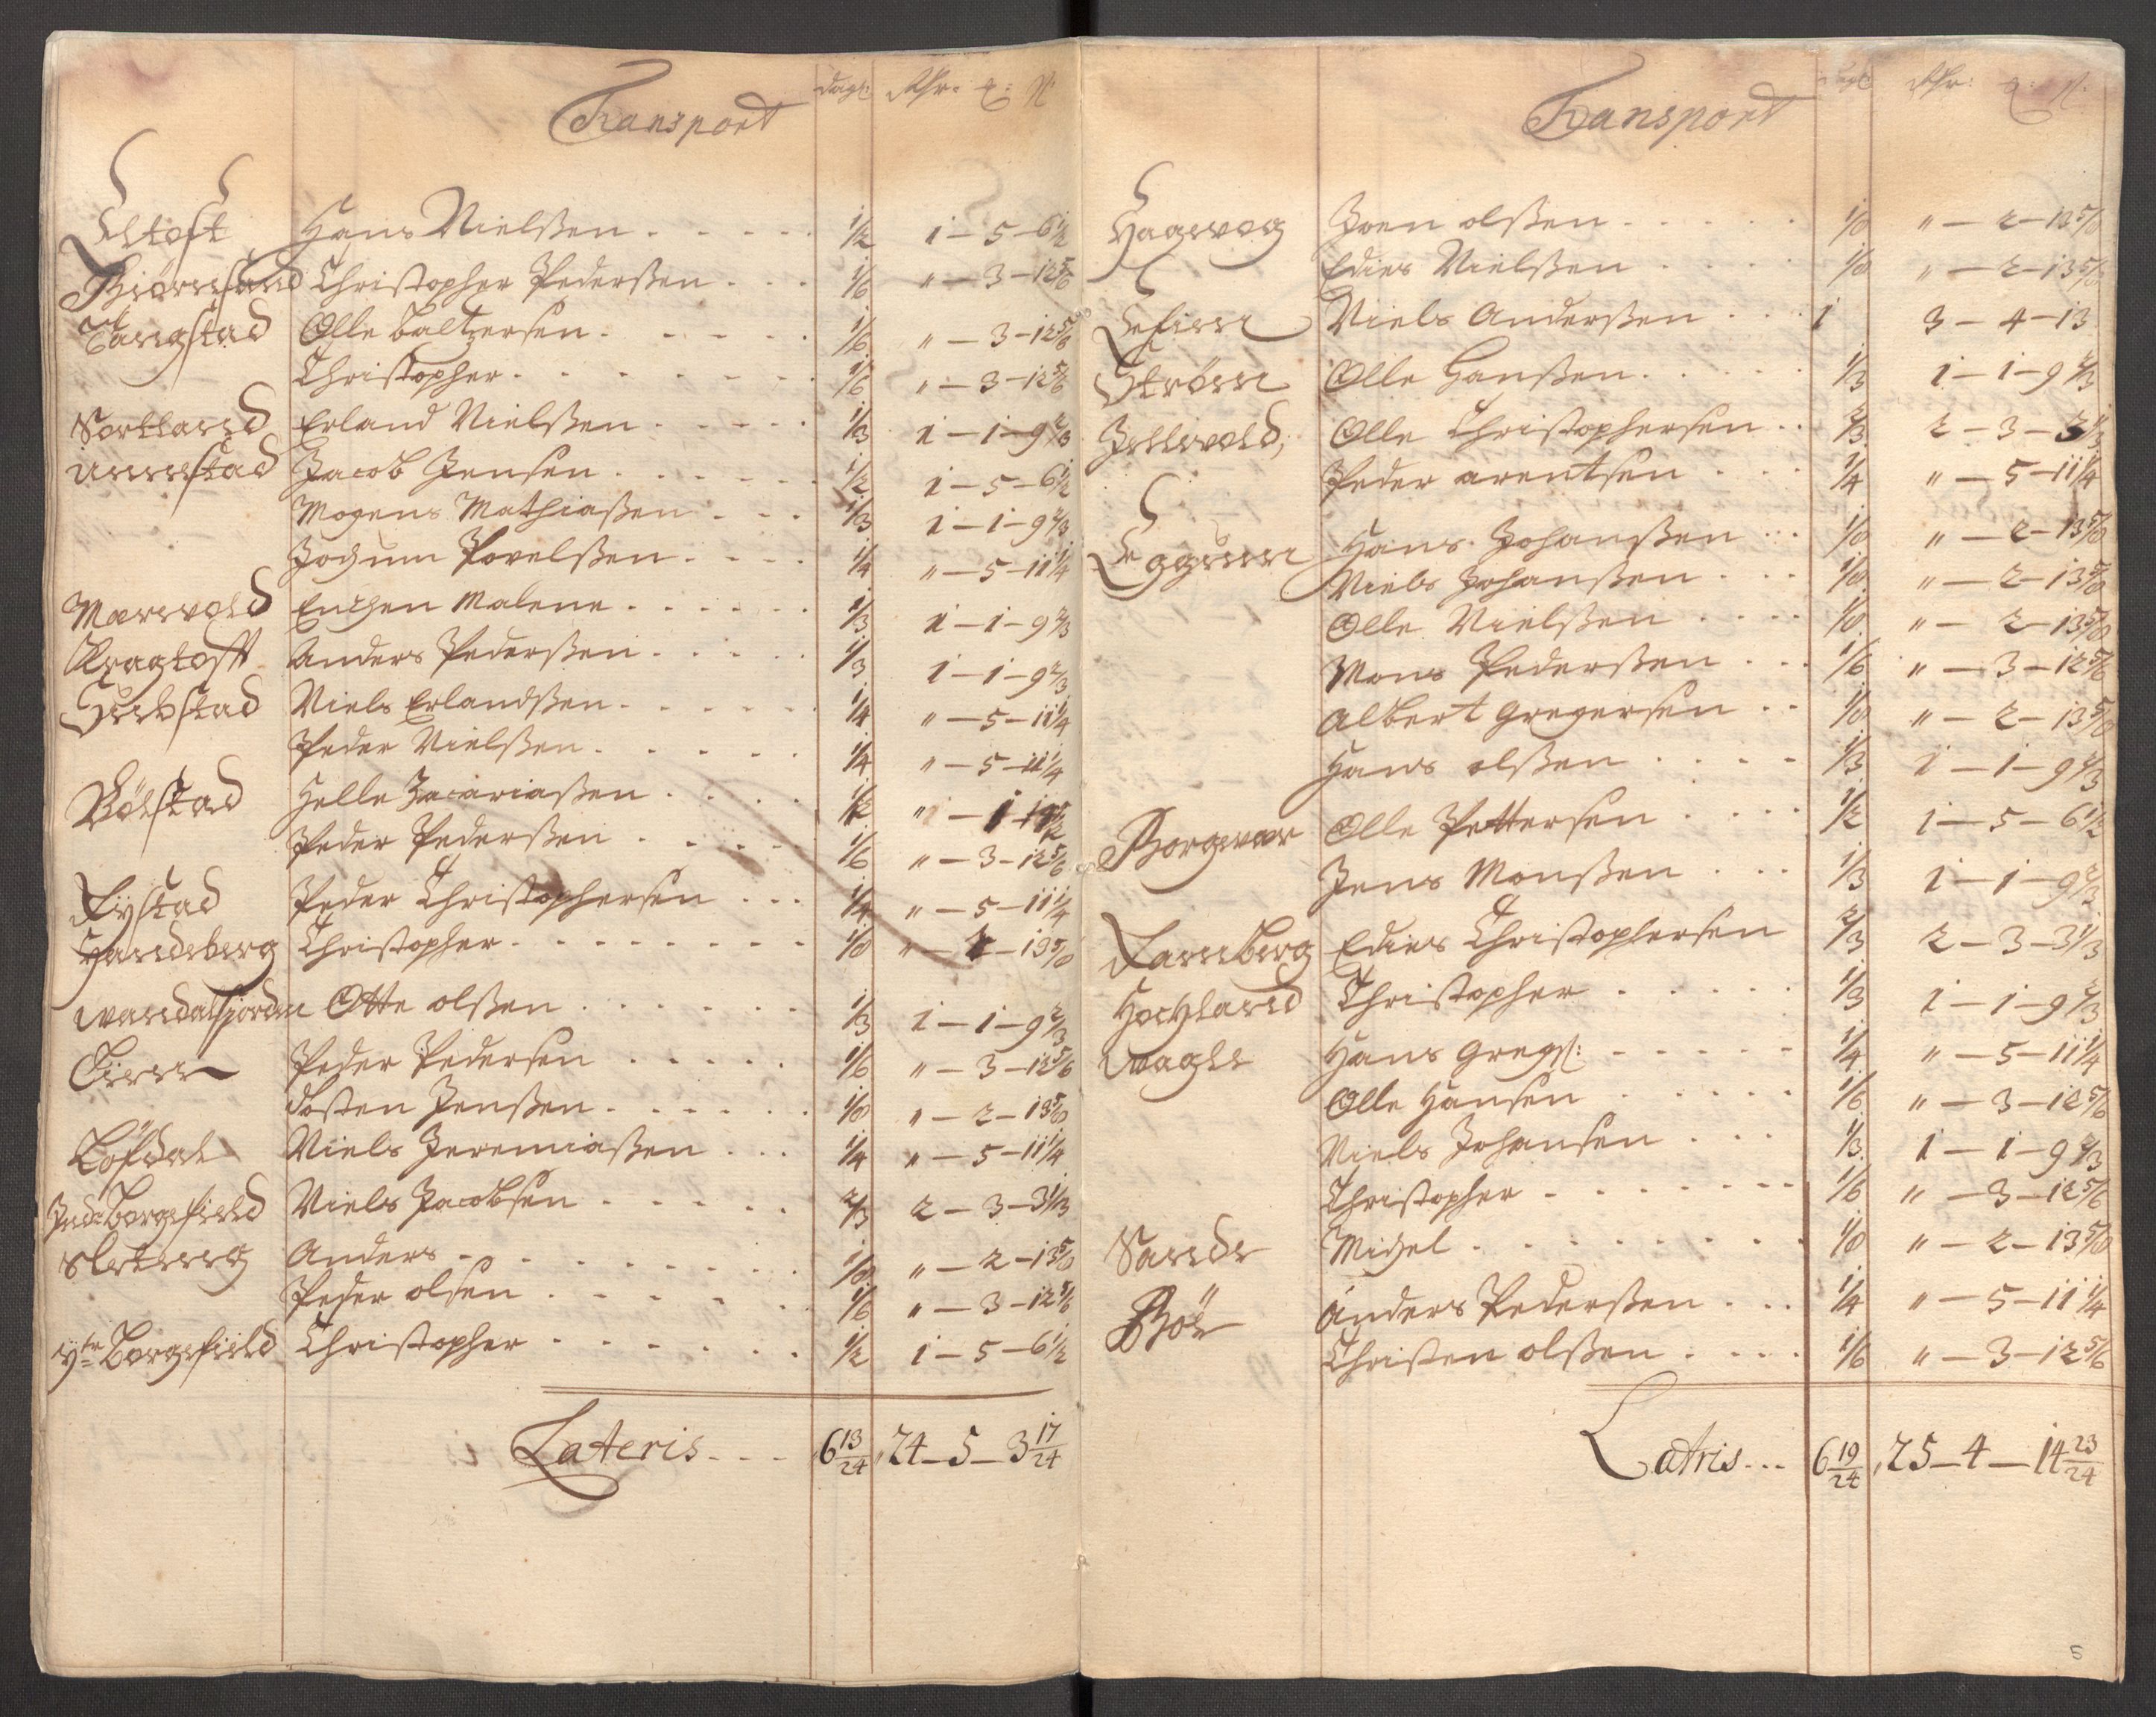 Transport
dagt: Rdr: ℥: ß
Eltoft Hans Nielßen . . . . . 1/2 1 – 5 – 6 1/2
Biørnsand Christopher Pederßen . . . 1/6 " – 3 – 12 5/6
Tangstad Olle Baltzersen . . . . . 1/6 " – 3 – 12 5/6
Christopher . . . . . . . 1/6 " – 3 – 12 5/6
Sortland Erland Nielßen . . . . . 1/3 1 – 1 – 9 2/3
Unnstad Jacob Jensen . . . . . . 1/2 1 – 5 – 6 1/2
Mogens Mathiaßen . . . 1/3 1 – 1 – 9 2/3
Jochum Povelßen . . . . 1/4 " – 5 – 11 1/4
Mærvold Enchen Malene . . . . . . 1/3 1 – 1 – 9 2/3
Kragtoft Anders Pederßen . . . . . 1/3 1 – 1 – 9 2/3
Niels Erlandßen . . . . . 1/4 " – 5 – 11 1/4
Peder Nielßen . . . . . 1/4 " – 5 – 11 1/4
Bølstad Helle Zacariaßen . . . .
Peder Pederßen . . . . . 1/6 " – 3 – 12 5/6
Fÿstad Peder Christophersen . . . 1/4 " – 5 – 11 1/4
Handeberg Christopher . . . . . . . . 1/8 " – 2 – 13 5/8
Wandalsfjorden Otte olßen . . . . . . 1/3 1 – 1 – 9 2/3
Peder Pedersen . . . . . 1/6 " – 3 – 12 5/6
Josten Jenßen . . . . . . 1/8 " – 2 – 13 5/8
Løfdal Niels Jeremiaßen . . . 1/4 " – 5 – 11 1/4
Indr Borgefield Niels Jacobsen . . . . . 2/3 2 – 3 – 3 1/3
Sletteng Anders . . . . . . . . 1/8 " – 2 – 13 5/8
Peder olsen . . . . . . 1/6 " – 3 – 12 5/6
ÿtr Borgefield Christopher . . . . . . 1/2 1 – 5 – 6 1/2
Lateris . . . 6 13/24 24 – 5 – 3 17/24
Transport
dagt Rdr: ℥: ß.
Hagevog Joen olßen . . . . . 1/8 " – 2 – 13 5/8
Edies Nielßen . . . . 1/8 " – 2 – 13 5/8
Niels Anderßen . . . 1 3 – 4 – 13
Strøm Olle Hanßen . . . . . 1/3 1 – 1 – 9 2/3
Jellvold, Olle Christophersen . . 2/3 2 – 3 – 3 1/3
Peder arentsen . . . 1/4 " – 5 – 11 1/4
Eggum Hans Johanßen . . 1/8 " – 2 – 13 5/8
Niels Johanßen . . . 1/8 " – 2 – 13 5/8
Olle Nielßen . . . . 1/8 " – 2 – 13 5/8
Mons Pederßen . . . 1/6 " – 3 – 12 5/6
Albert Gregersen . . 1/8 " – 2 – 13 5/8
Hans olßen . . . . 1/3 1 – 1 – 9 2/3
Borgevær Olle Pettersen . . . . 1/2 1 – 5 – 6 1/2
Jens Monßen . . . 1/3 1 – 1 – 9 2/3
Edies Christophersen 2/3 2 – 3 – 3 1/3
Christopher . . . . . 1/3 1 – 1 – 9 2/3
Wagle Hans Gregs: . . . . . 1/4 " – 5 – 11 1/4
Olle Hansen . . . . . 1/6 " – 3 – 12 5/6
Niels Johansen . . . 1/3 1 – 1 – 9 2/3
Christopher . . . . . . . 1/6 " – 3 – 12 5/6
Sande Michel . . . . . . . . . 1/8 " – 2 – 13 5/8
Bøe Anders Pederßen . . . 1/4 " – 5 – 11 1/4
Christen olßen . . . . 1/6 " – 3 – 12 5/6
Latris . . . 6 19/24 25 – 4 – 14 23/24
5